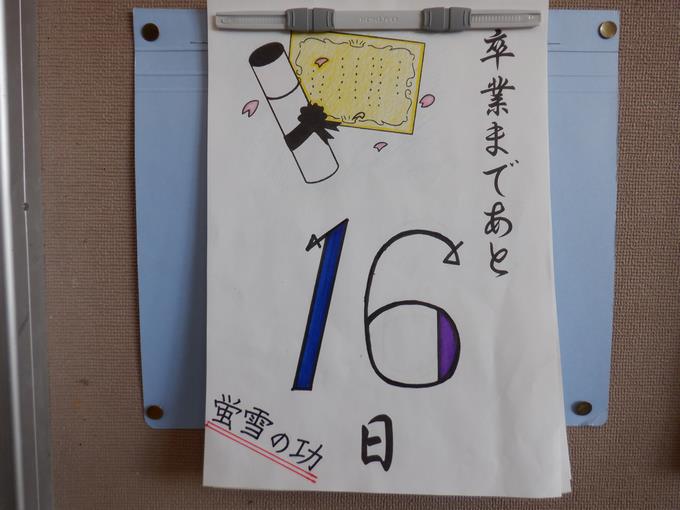 卒業まであと
16
日
蛍雪の功